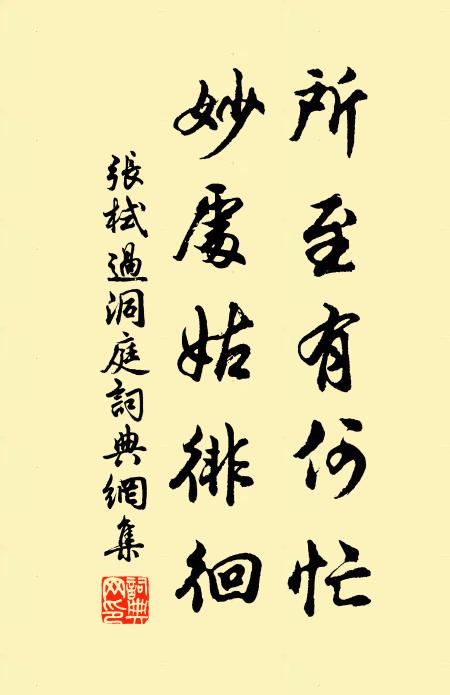 所至有何忙
妙處姑徘徊
張栻過洞庭詞典網集
詞典网印